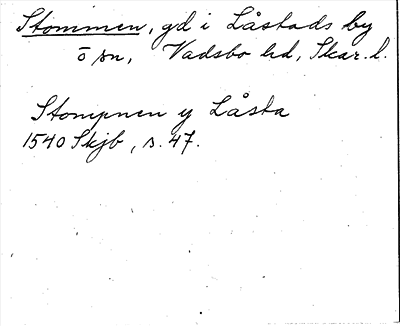 Stommen, gd i Låstads by
ö sn, Vadsbo hd, Skar. l.
Stompnen y Låsta
1540 Skjb, s. 47.